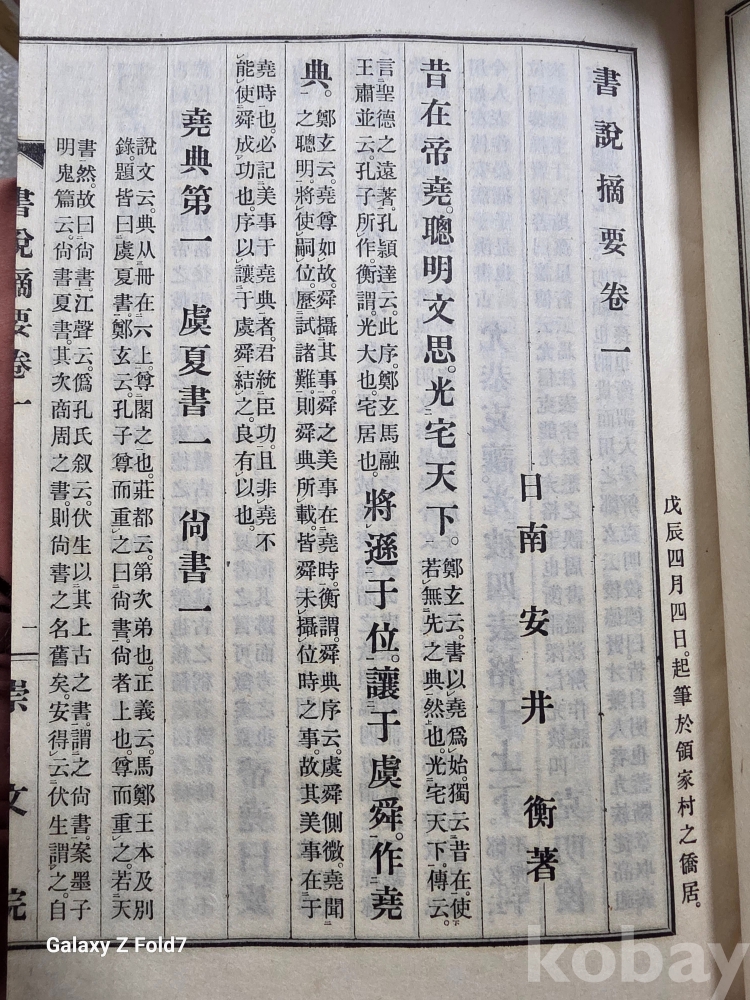 戊辰四月四日。起筆於領家村之僑居。
書說摘要卷一
日南 安井 衡著
昔在帝堯。聰明文思。光宅天下。
鄭玄云。書以堯爲始。獨云昔在。使
若無先之典然也。光宅天下。傳云。
言聖德之遠著。孔穎達云。此序。鄭玄馬融
王肅並云。孔子所作。衡謂。光大也。宅居也。
將遜于位。讓于虞舜。作堯
典。
鄭玄云。堯尊如故。舜攝其事。舜之美事在堯時。衡謂。舜典序云。虞舜側微。堯聞
之聰明。將使嗣位。歷試諸難。則舜典所載。皆舜未攝位時之事。故其美事在于
堯時也。必記美事于堯典者。君統臣功。且非堯不
能使舜成功也。序以讓于虞舜結之。良有以也。
堯典第一 虞夏書一 尙書一
說文云。典从冊在六上。尊閣之也。莊都云。第次弟也。正義云。馬鄭王本及別
錄題皆曰虞夏書。鄭玄云。孔子尊而重之曰尙書。尙者上也。尊而重之。若天
書然。故曰尙書。江聲云。僞孔氏叙云。伏生以其上古之書。謂之尙書。案墨子
明鬼篇云。尙書夏書。其次商周之書。則尙書之名舊矣。安得云伏生謂之。自
書說摘要卷一 一 崇文院
Galaxy Z Fold7
kobay